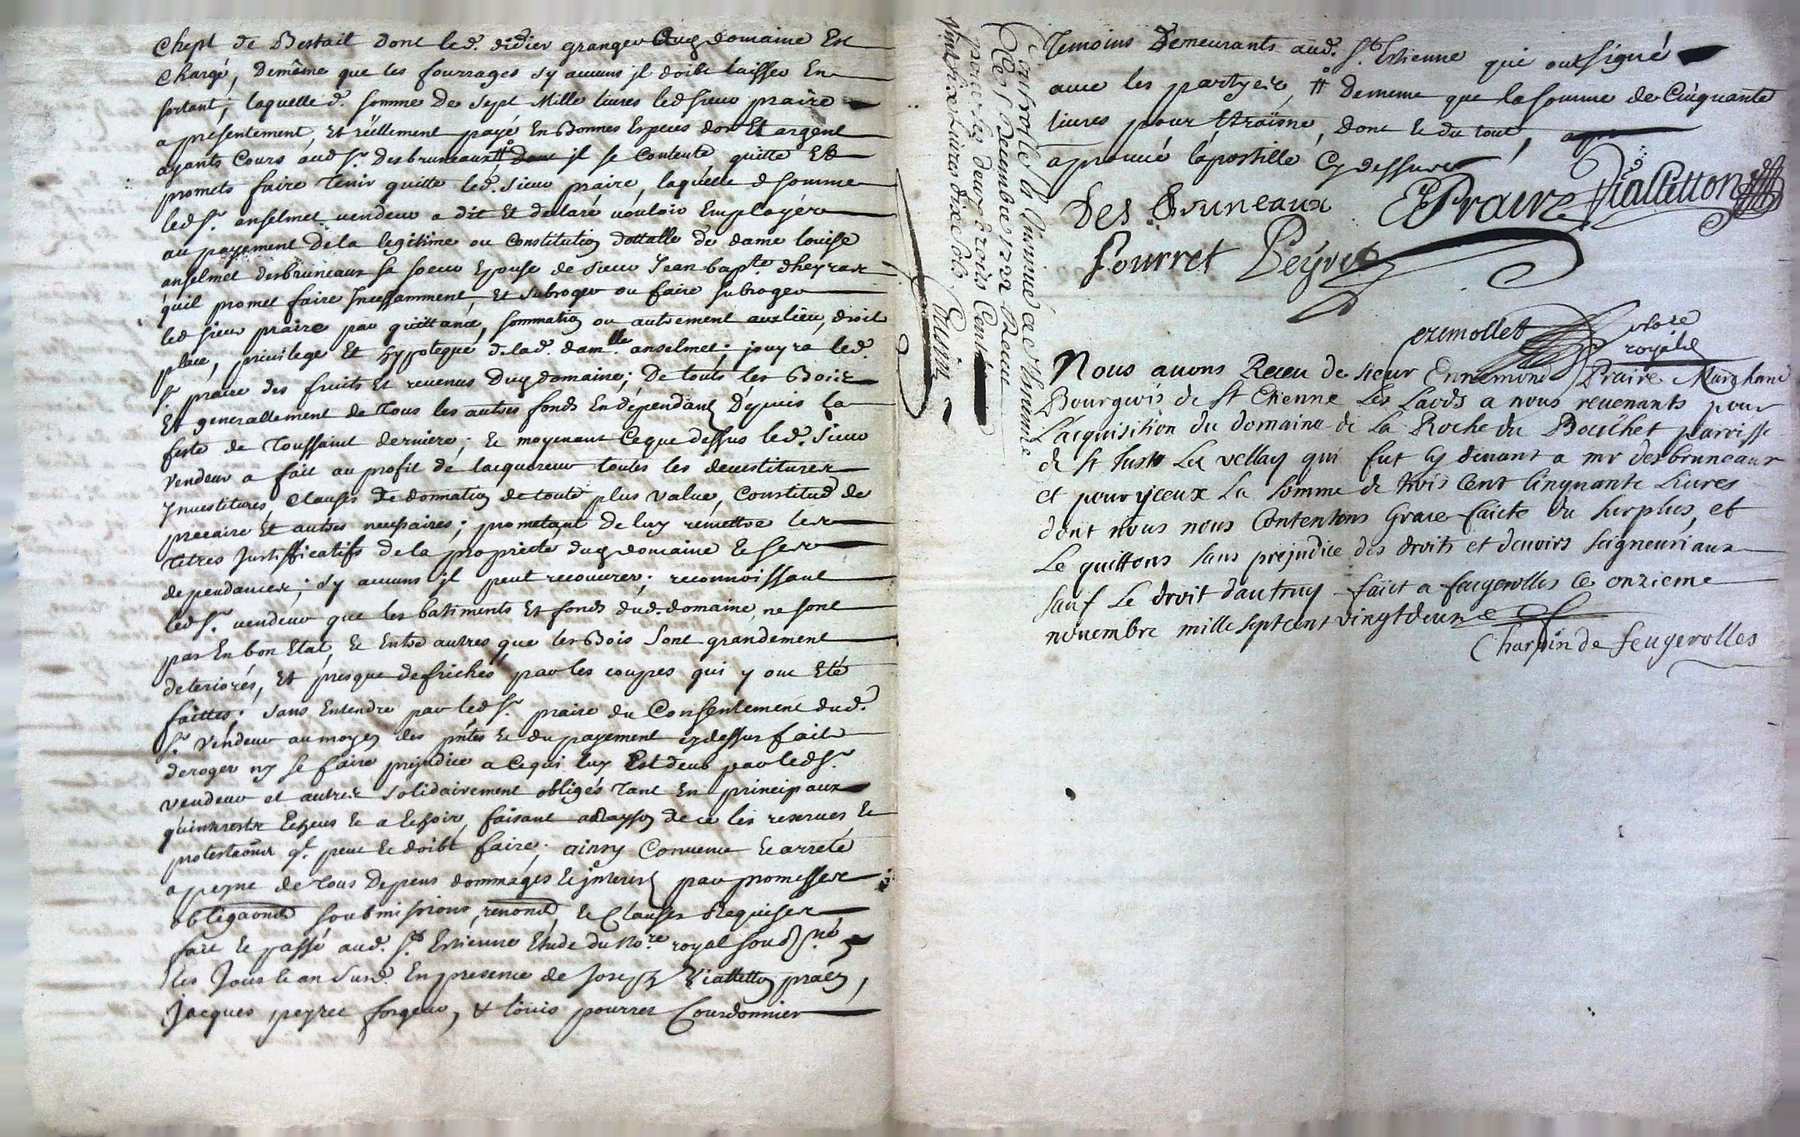 chept de Bestail dont led. didier granger duq domaine Est
chargé, demême que les fourrages sy aucuns jl doibt laisser En
sortant; laquelle d. somme de sept Mille livres led sieur praire
a presentement, Et réellement payé En Bonnes Especes dor Et argent
ayants Cours aud Sr. desbruneaux dont jl se Contente quitte Et
promets faire tenir quitte led. sieur praire, laquelle d somme
led Sr. anselmet vendeur a dit Et declaré vouloir Employer
au payement déla legitime ou Constitution dottalle de dame louise
anselmet desbruneaux sa soeur Epouse de sieur Jean bapte. dheyraux
quil promet faire Jncessamment, Et subroger ou faire subroger
led sieur praire par quittance, sommation ou autrement aux lieu, droit
place, privilege Et hypoteque de lad. damlle anselmet; jouyra led.
Sr. praire des fruits Et revenus duq domaine; De touts les Bois
Et generallement de tous les autres fonds En dépendant Depuis la
feste de Toussaint derniere; Et moyenant Ceque dessus led. sieur
vendeur a fait au profit de lacquereur toutes les devestitures
Jnvestitures, Clauses de donnation de toute plus value, Constitud de
precaire Et autres necessaires; prometant de luy remettre les
titres justifficatifs de la proprieté duq domaine Et ses
dependances; sy aucuns jl peut recouvrer; reconnoissant
led Sr. vendeur que les batiments Et fonds dud. domaine ne sont
pas En bon Etat, Et Entre autres que les Bois sont grandement
deteriorés, Et presque defrichés par les coupes qui y ont Eté
faittes; sans Entendre par led Sr. praire du Consentement dud.
Sr. vendeur au moyen des pntes Et du payement cydessus fait
deroger ny se faire prejudice a Cequi luy Est deub par led Sr.
vendeur et autres solidairement obligés tant En principaux
quinterests Echeus Et a Echoir, faisant a Rayson de ce les reserves Et
protestaons qt. peut Et doibt faire; ainsy Convenu Et arreté
a peyne de tous depens dommages Et jnterest par promesses
obligaons soubmissions, renons, Et Clauses Requises
fait Et passé aud. St Estienne Etude du nore royal soussigné
les Jour Et an susd. En presence de Joseph Vialletton praen,
Jacques peyret forgeur, & louis pourret Courdonnier
Controllé a St Chaumont a St Estienne
Ce 5 Decembre 1722 Receu
pour les deux droits Cent
vingt six Livres dix sols
Temoins Demeurants aud. St. Estienne qui ont signé
avec les partyes, # demême que la somme de Cinquante
livres pour Etraisne, dont Et du tout,
aprouvé lapostille Cy dessus
Des Bruneaux EPraire Vialletton
Pourret Peyret
crimollet notere
royale
Nous avons Receu de sieur Ennemond Praire Marchand
Bourgeois de St Etienne Les Laods a nous revenants pour
Lacquisition du domaine de La Roche du Bouchet parroisse
de St Just Les vellay qui fut cy devant a mr desbruneaux
et pour yceux La somme de trois Cent Cinquante Livres
dont nous nous Contentons Grace faicte du surplus, et
Le quittons sans prejudice des droits et devoirs seigneuriaux
sauf Le droit dautruy faict a feugerolles Ce onzieme
novembre mille sept cent vingt deux
Charpin de feugerolles